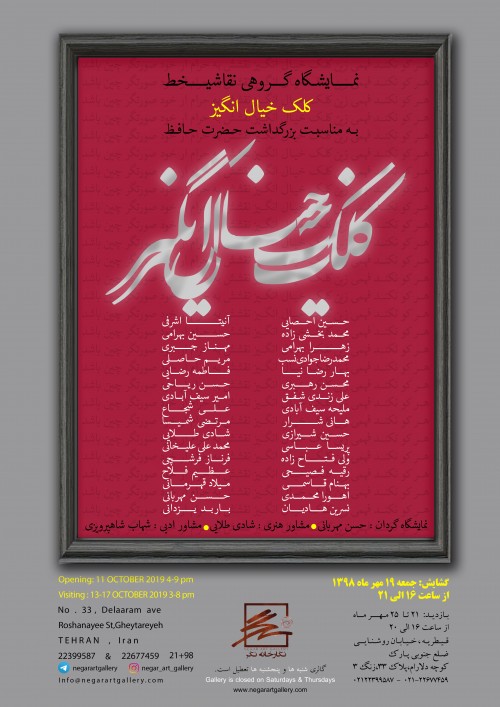 نمایشگاه گروهی نقاشیخط
کلک خیال انگیز
به مناسبت بزرگداشت حضرت حافظ
کلک خیال انگیز
حسین احصایی
محمد بخشی زاده
زهرا بهرامی
محمدرضاجوادی‌نسب
بهار رضا نیا
محسن رهبری
علی زندی شفق
ملیحه سیف آبادی
هانی شرار
حسین شیرازی
پریسا عباسی
ولی فتاح زاده
رقیه فصیحی
بهنام قاسمی
اهورا محمدی
نسرین هادیان
آنیتا اشرفی
حسین بهرامی
مهناز جبری
مریم حاصلی
فاطمه رضایی
حسن ریاحی
امیر سیف آبادی
علی شجاع
مرتضی شمیسا
شادی طلایی
محمد علی علیخانی
فرناز فرشچی
عظیم فلاح
میلاد قهرمانی
حسن مهربانی
باربد یزدانی
نمایشگاه گردان : حسن مهربانی • مشاور هنری : شادی طلایی • مشاور ادبی : شهاب شاهپرویزی
Opening: 11 OCTOBER 2019 4-9 pm
Visiting : 13-17 OCTOBER 2019 3-8 pm
No . 33 , Delaaram ave
Roshanayee St,Gheytareyeh
TEHRAN , Iran
22399587 & 22677459 21+98
negarartgallery negar_art_gallery
Info@negarartgallery.com
نگارخانه نگر
گالری شنبه ها و پنجشنبه ها تعطیل است.
Gallery is closed on Saturdays & Thursdays
www.negarartgallery.com
گشایش: جمعه ۱۹ مهر ماه ۱۳۹۸
از ساعت ۱۶ الی ۲۱
بازدید: ۲۱ تا ۲۵ مهر ماه
از ساعت ۱۶ الی ۲۰
قیطریه، خیابان روشنایی
ضلع جنوبی پارک
کوچه دلارام، پلاک ۳۳، زنگ ۳
۰۲۱-۲۲۶۷۷۴۵۹ - ۰۲۱۲۲۳۹۹۵۸۷